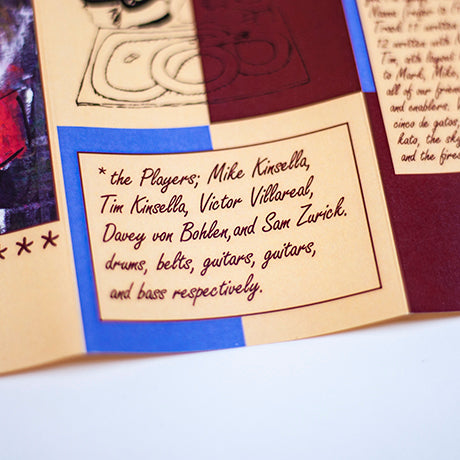 ***
* the Players; Mike Kinsella,
Tim Kinsella, Victor Villareal,
Davey von Bohlen, and Sam Zurick.
drums, belts, guitars, guitars,
and bass respectively.
Track 11 written
12 written with
Tim, with
to Mark, Mike,
all of our
and enablers,
cinco de gatos,
kato, the sky
and the